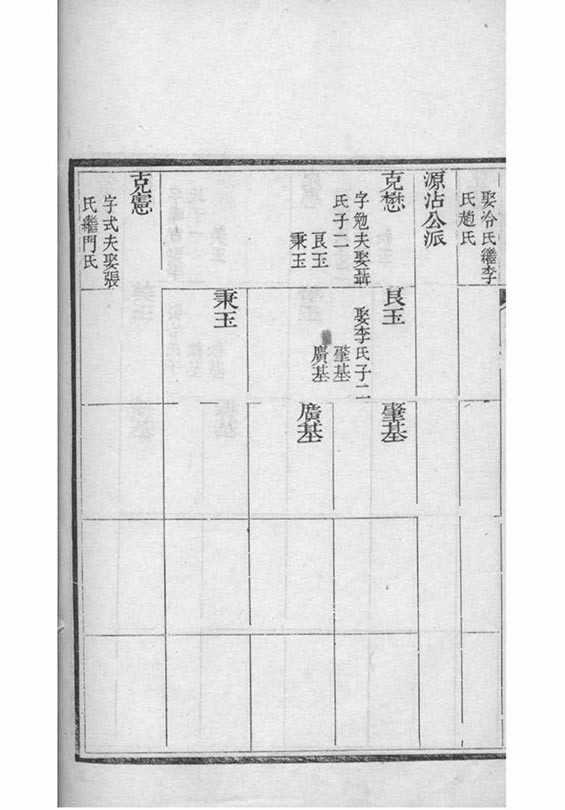 娶冷氏繼李
氏趙氏
源沾公派
克懋
字勉夫娶聶
氏子二
良玉
秉玉
良玉
娶李氏子二
肇基
廣基
肇基
廣基
秉玉
克憲
字式夫娶張
氏繼門氏